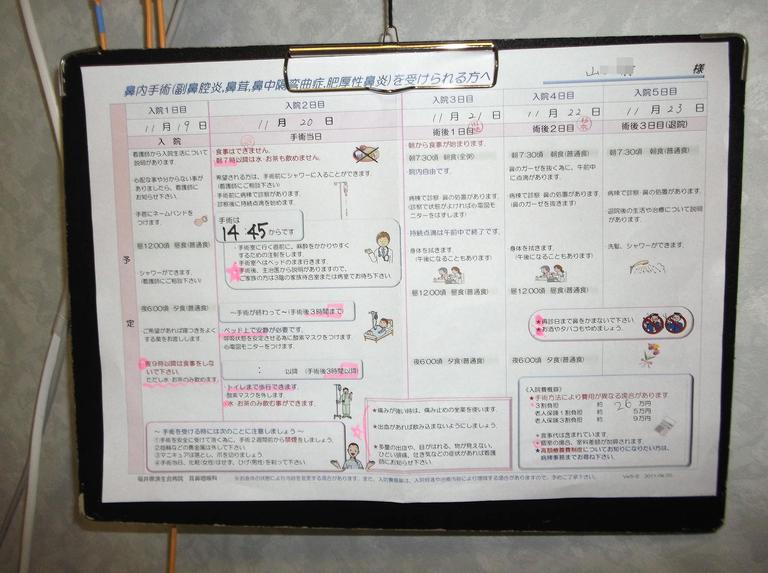 鼻内手術(副鼻腔炎,鼻茸,鼻中隔弯曲症,肥厚性鼻炎)を受けられる方へ
様
入院1日目
11月19日
入院
看護師から入院生活について
説明があります
心配な事や分からない事が
ありましたら、看護師に
お知らせ下さい
手首にネームバンドを
つけます。
昼12:00頃 昼食(普通食)
シャワーができます。
(看護師にご相談下さい)
夜6:00頃 夕食(普通食)
ご希望があれば寝つきをよく
する薬をお渡しします。
夜9時以降は食事をしな
いで下さい。
ただし水・お茶のみ飲めます。
予定
入院2日目
11月20日
手術当日
食事はできません。
朝7時以降は水・お茶も飲めません。
希望される方は、手術前にシャワーに入ることができます。
(看護師にご相談下さい)
手術前に病棟で診察があります。
診察後に持続点滴を始めます。
手術は
14:45からです
・手術室に行く直前に、麻酔をかかりやすく
するための注射をします。
・手術室へはベッドのまま行きます。
・手術後、主治医から説明がありますので、
ご家族の方は3階の家族待合室または病室でお待ち下さい
～手術が終わって～(手術後3時間まで)
ベッド上で安静が必要です。
呼吸状態を安定させる為に酸素マスクをつけます。
心電図モニターをつけます。
: 以降 (手術後3時間以降)
・トイレまで歩行できます。
酸素マスクを外します。
水・お茶のみ飲む事ができます。
入院3日目
11月21日
術後1日目
朝から食事が始まります。
朝7:30頃 朝食(全粥)
院内自由です。
病棟で診察・鼻の処置があります。
(診察で状態がよければ心電図モ
ニターをはずします)
持続点滴は午前中で終了です。
身体を拭きます。
(午後になることもあります)
昼12:00頃 昼食(普通食)
夜6:00頃 夕食(普通食)
入院4日目
11月22日
術後2日目
朝7:30頃 朝食(普通食)
鼻のガーゼを抜く為に、午前中
に点滴があります。
病棟で診察・鼻の処置があります
(鼻のガーゼを抜きます)
身体を拭きます。
(午後になることもあります)
昼12:00頃 昼食(普通食)
夜6:00頃 夕食(普通食)
入院5日目
11月23日
術後3日目(退院)
朝7:30頃 朝食(普通食)
病棟で診察・鼻の処置があります
退院後の生活や治療について説明
があります。
洗髪、シャワーができます。
★再診日まで鼻をかまないで下さい
★お酒やタバコもやめましょう。
～ 手術を受ける時には次のことに注意しましょう ～
①手術を安全に受けて頂く為に、手術2週間前から禁煙をしましょう。
②指輪などの貴金属は外して下さい
③マニキュアは落とし、爪を切りましょう。
④手術当日、化粧(女性)はせず、ひげ(男性)を剃って下さい
★痛みが強い時は、痛み止めの坐薬を使います。
★出血があれば飲み込まないようにしましょう。
★多量の出血や、目がはれる、物が見えない、
ひどい頭痛、吐き気などの症状があれば看護
師にお知らせ下さい
《入院費概算》
★手術方法により費用が異なる場合があります
3割負担 約 26 万円
老人保険1割負担 約 5万円
老人保険3割負担 約 9万円
・食事代は含まれています。
・個室の場合、室料差額が加算されます。
★高額療養費制度についてお知りになりたい方は、
病棟事務までお尋ね下さい。
福井県済生会病院 耳鼻咽喉科